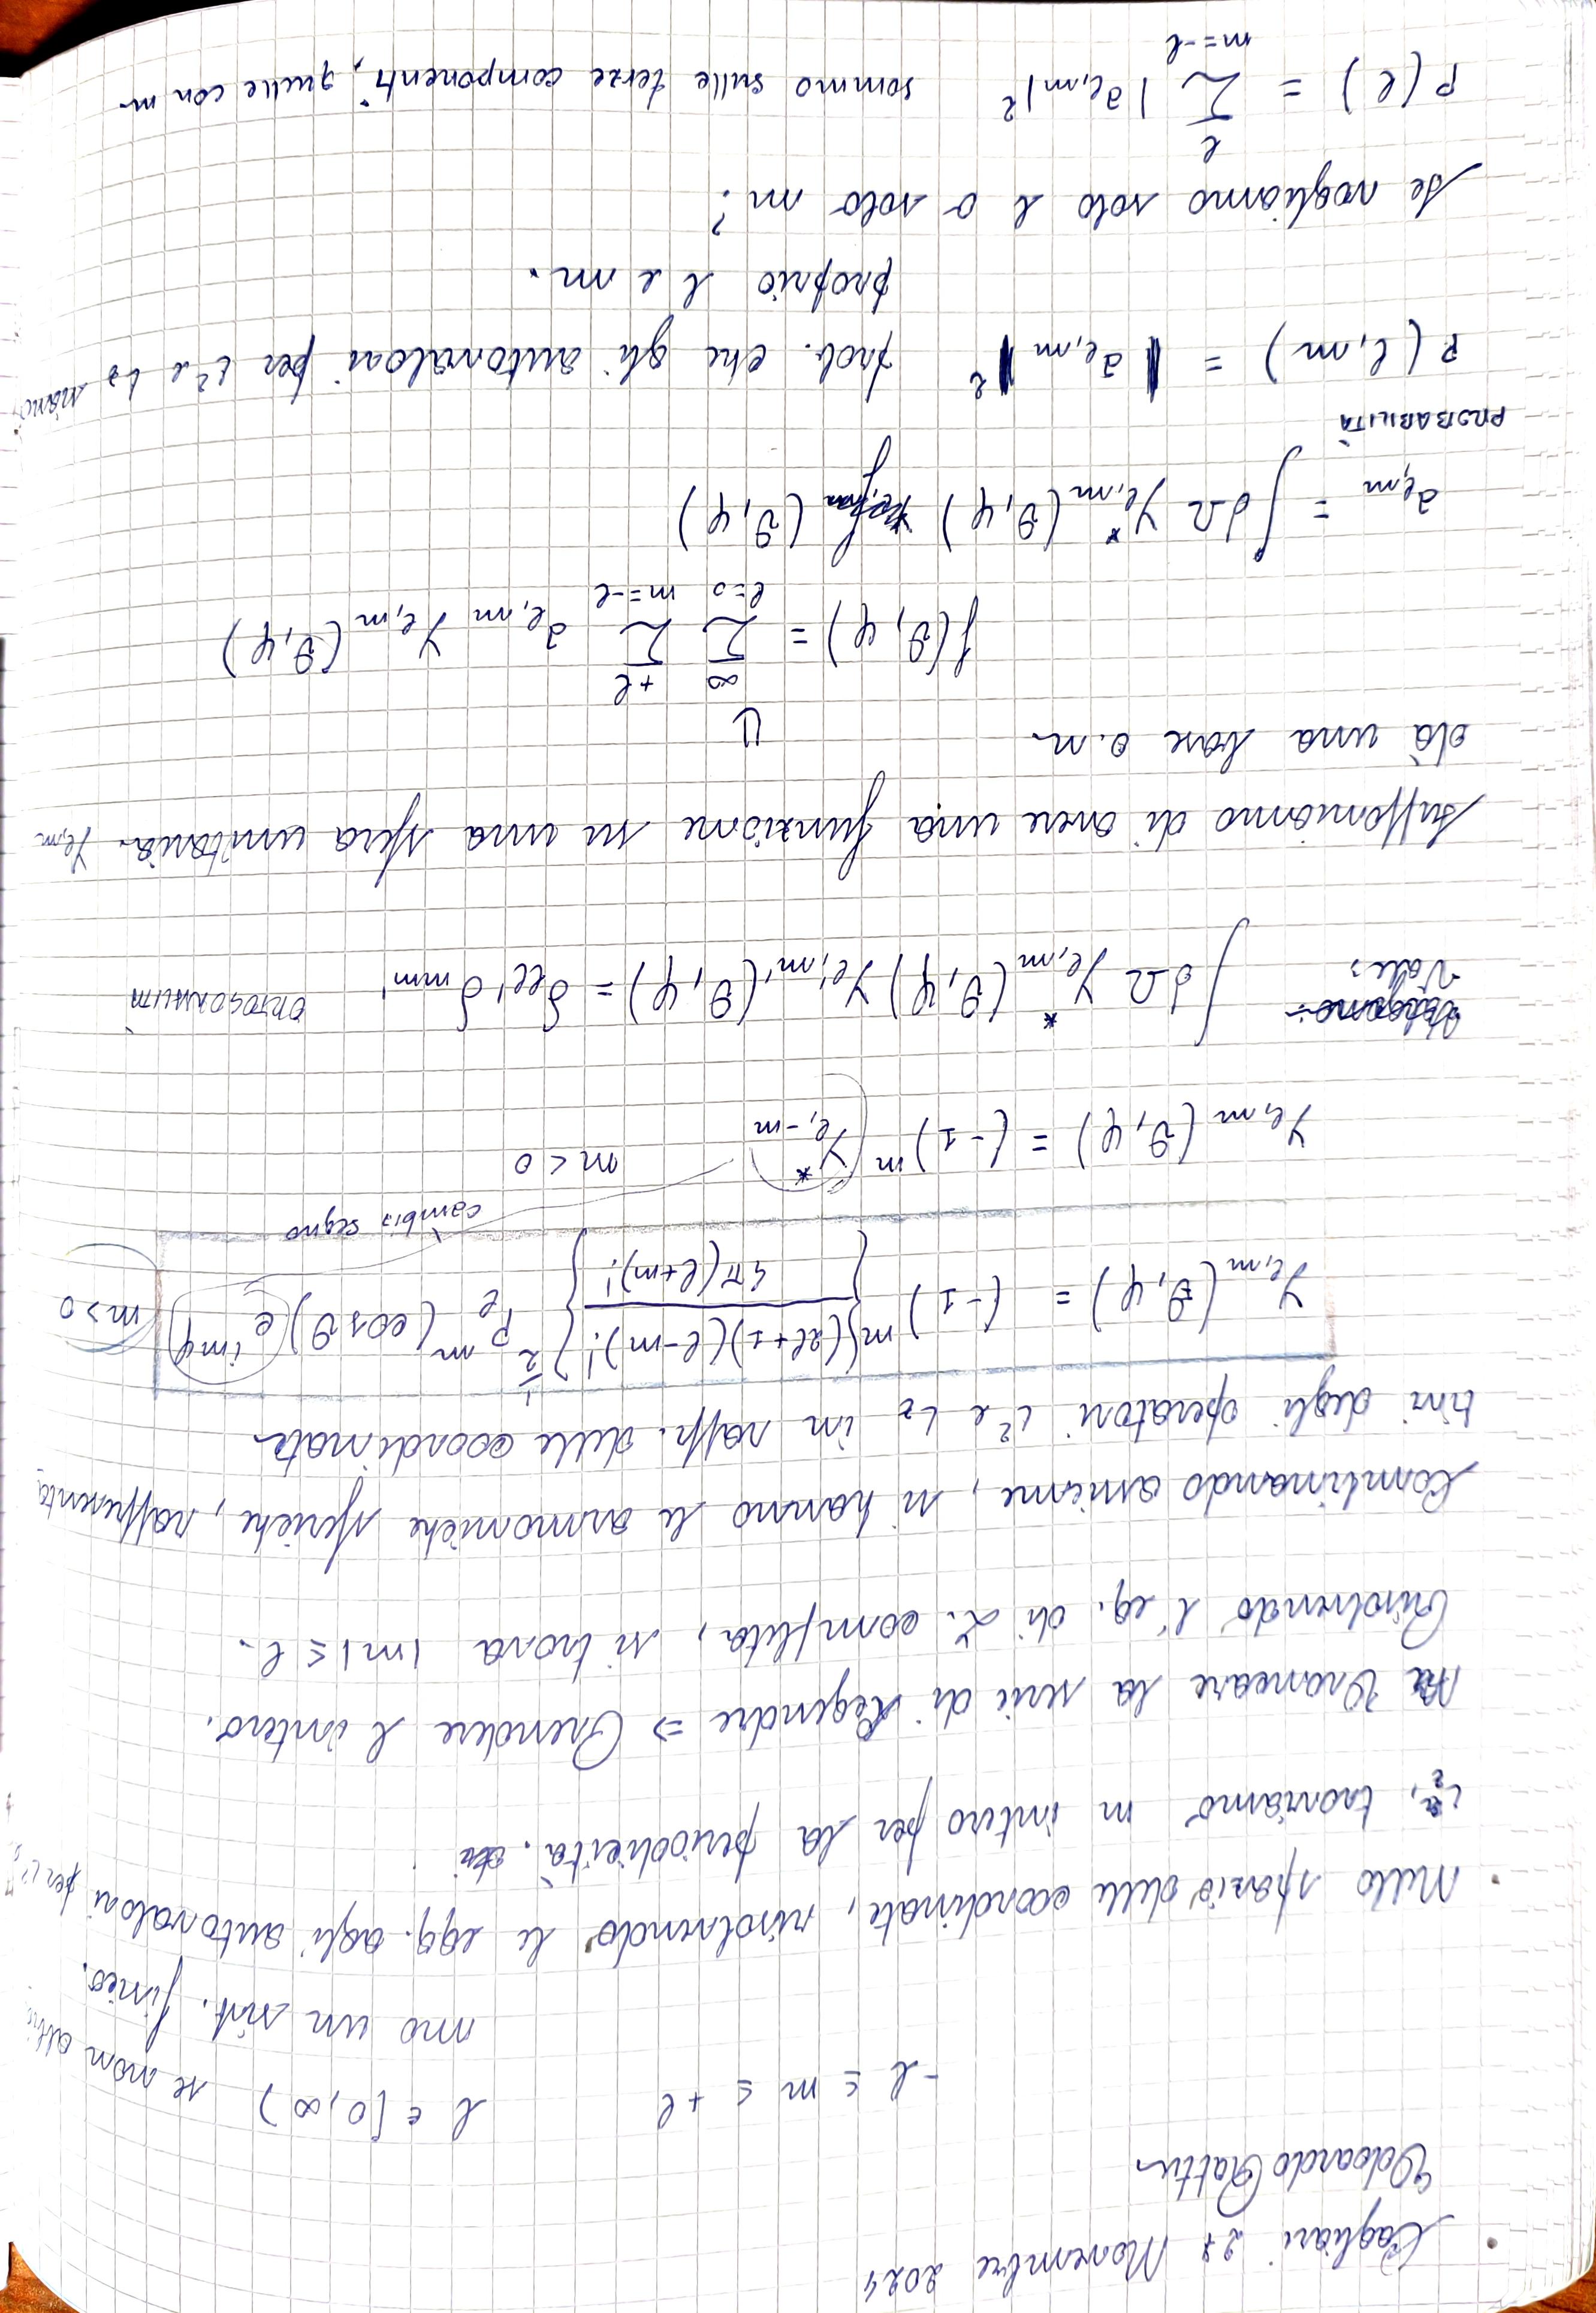 Cagliari 27 Novembre 2024
Edoardo Pattu
-l ≤ m ≤ +l l ∈ [0,∞) se non altri
mo un sist. fisico.
Nello spazio delle coordinate, risolvendo le eqq. agli autovalori per L² e
Lz, troviamo m intero per la periodicità.
Troncare la serie di Legendre ⇒ Prendere l intero.
Risolvendo l'eq. di L. completa, si trova |m| ≤ l.
Combinando assieme, si hanno le armoniche sferiche, rappresenta
tivi degli operatori L² e Lz in rapp. delle coordinate
Yl,m (θ,φ) = (-1)^m {(2l+1)(l-m)! / 4π(l+m)!}^1/2 Pl^m (cos θ) e^imφ m>0
cambia segno
Yl,m (θ,φ) = (-1)^m Y*l,-m m<0
Vale: ∫ dΩ Y*l,m (θ,φ) Yl',m' (θ,φ) = δll' δmm' ORTOGONALITÀ
Supponiamo di avere una funzione su una sfera unitaria. Yl,m
dà una base o.n.
⇓
f(θ,φ) = ∑l=0^∞ ∑m=-l^+l al,m Yl,m (θ,φ)
al,m = ∫ dΩ Y*l,m (θ,φ) f (θ,φ)
PROBABILITÀ
P(l,m) = |al,m|² prob. che gli autovalori per L² e Lz siano
proprio l e m.
Se vogliamo solo l o solo m?
P(l) = ∑m=-l^l |al,m|² sommo sulle terze componenti, quelle con m